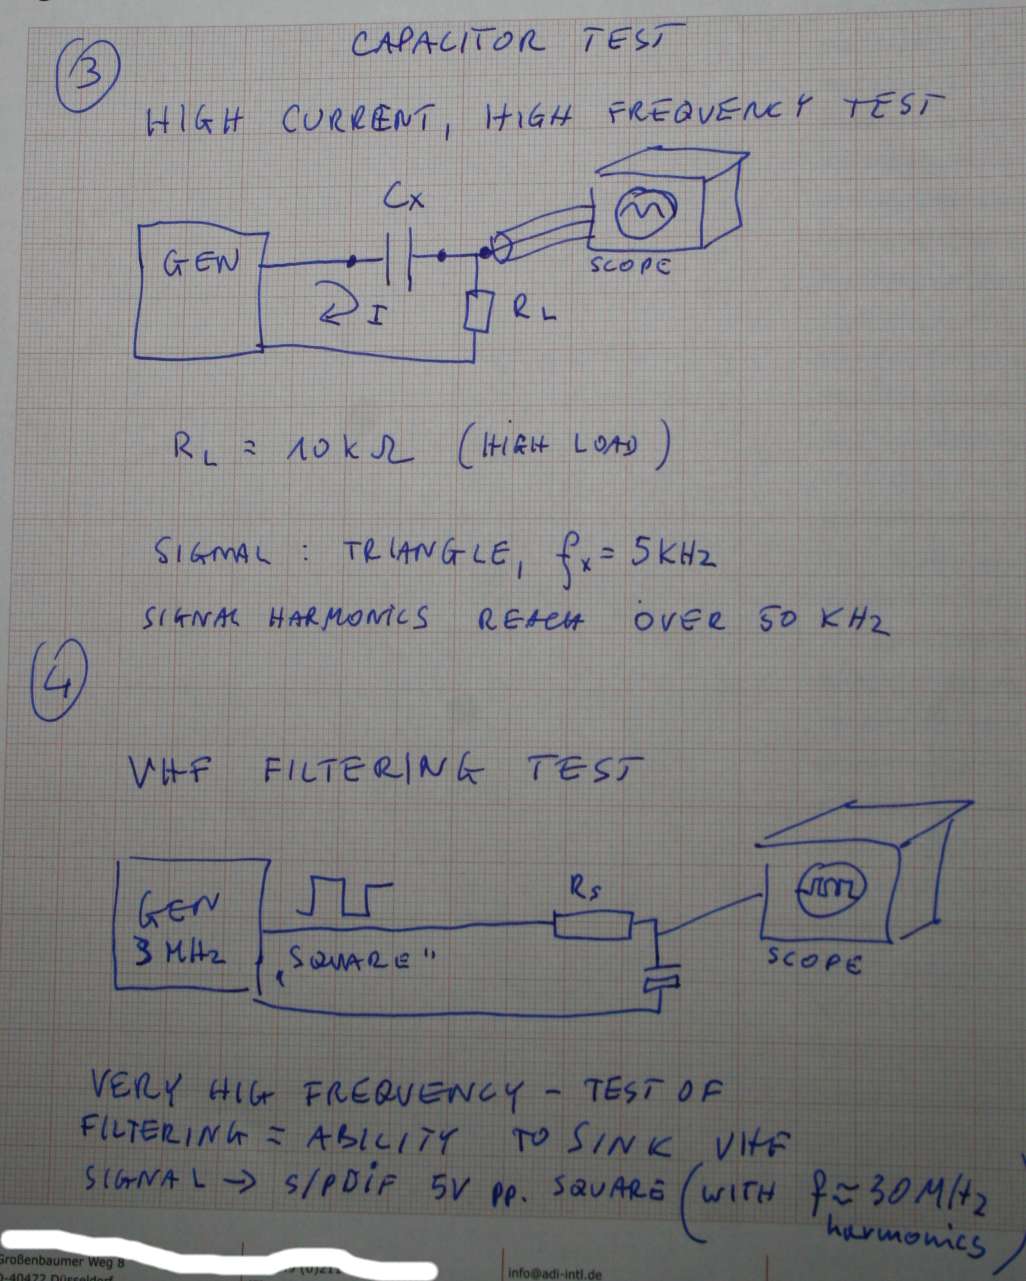 CAPACITOR TEST
3
HIGH CURRENT, HIGH FREQUENCY TEST
Cx
GEN
SCOPE
I
RL
RL = 10 k Ω (HIGH LOAD)
SIGNAL : TRIANGLE, fx = 5 KHz
SIGNAL HARMONICS REACH OVER 50 KHz
4
VHF FILTERING TEST
GEN
3 MHz
„SQUARE"
Rs
SCOPE
VERY HIG FREQUENCY – TEST OF
FILTERING = ABILITY TO SINK VHF
SIGNAL → S/PDiF 5V pp. SQUARE (WITH f ≈ 30 MHz
harmonics)
Großenbaumer Weg 8
info@adi-intl.de
D-40472 Düsseldorf